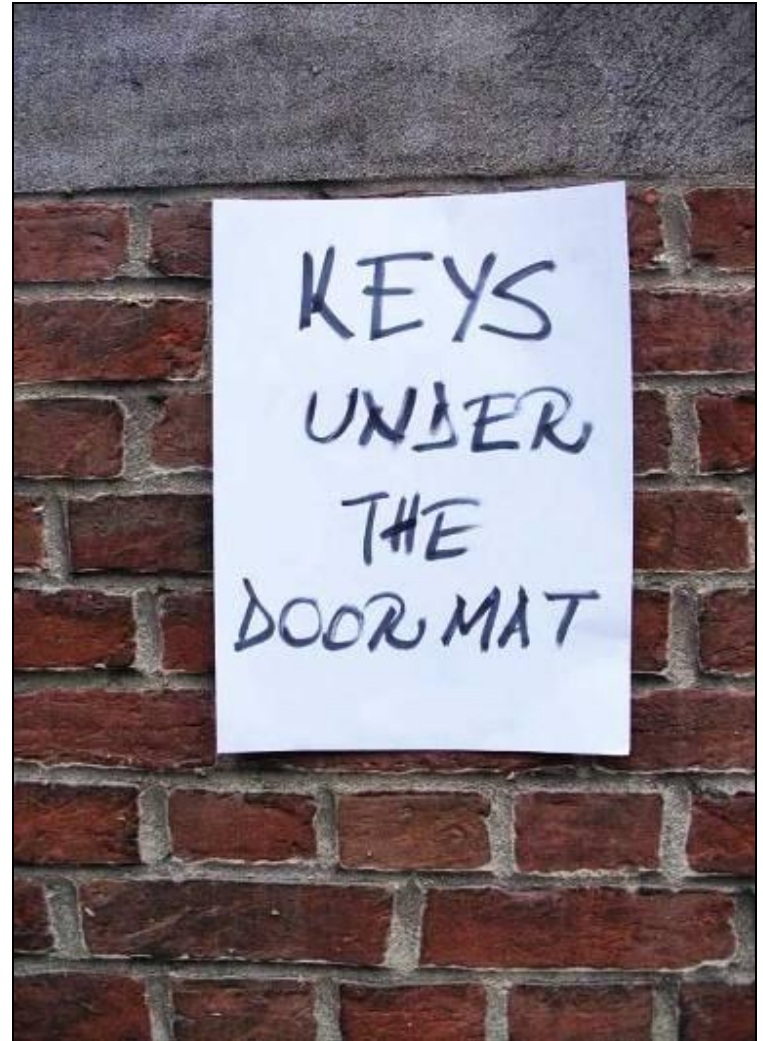 KEYS
UNDER
THE
DOOR MAT